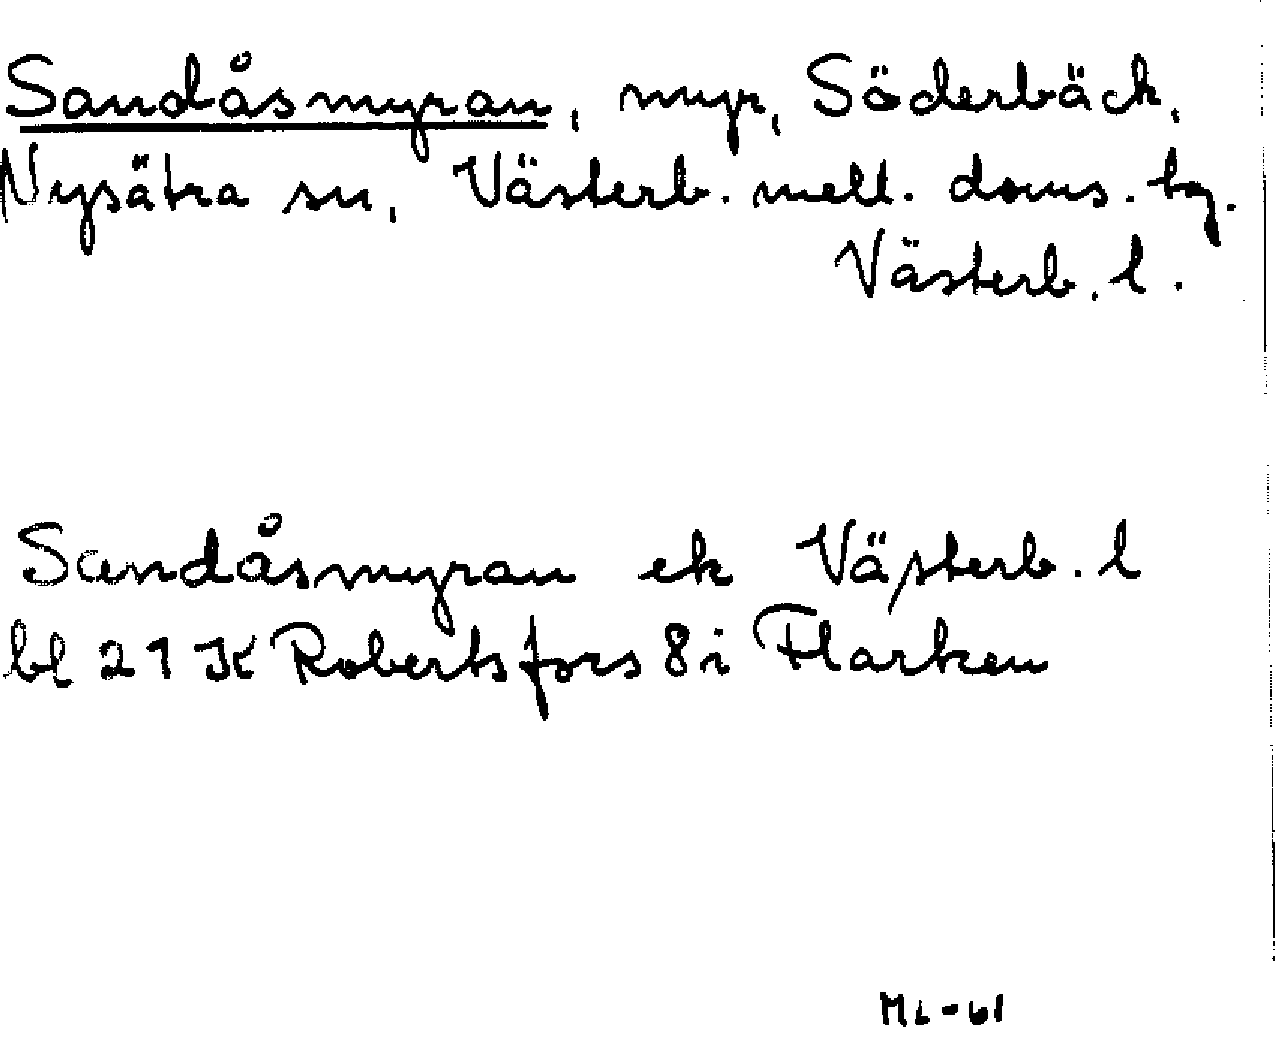 Sandåsmyran, myr, Söderbäck,
Nysätra sn, Västerb. mell. doms. tg.
Västerb. l.
Sandåsmyran ek Västerb. l
bl 21 K Robertsfors 8 i Flarken
ML-61